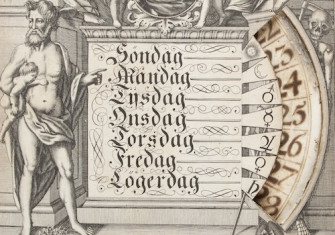 Söndag
Måndag
Tysdag
Onsdag
Torsdag
Fredag
Logerdag
22
23
24
25
26
27
28